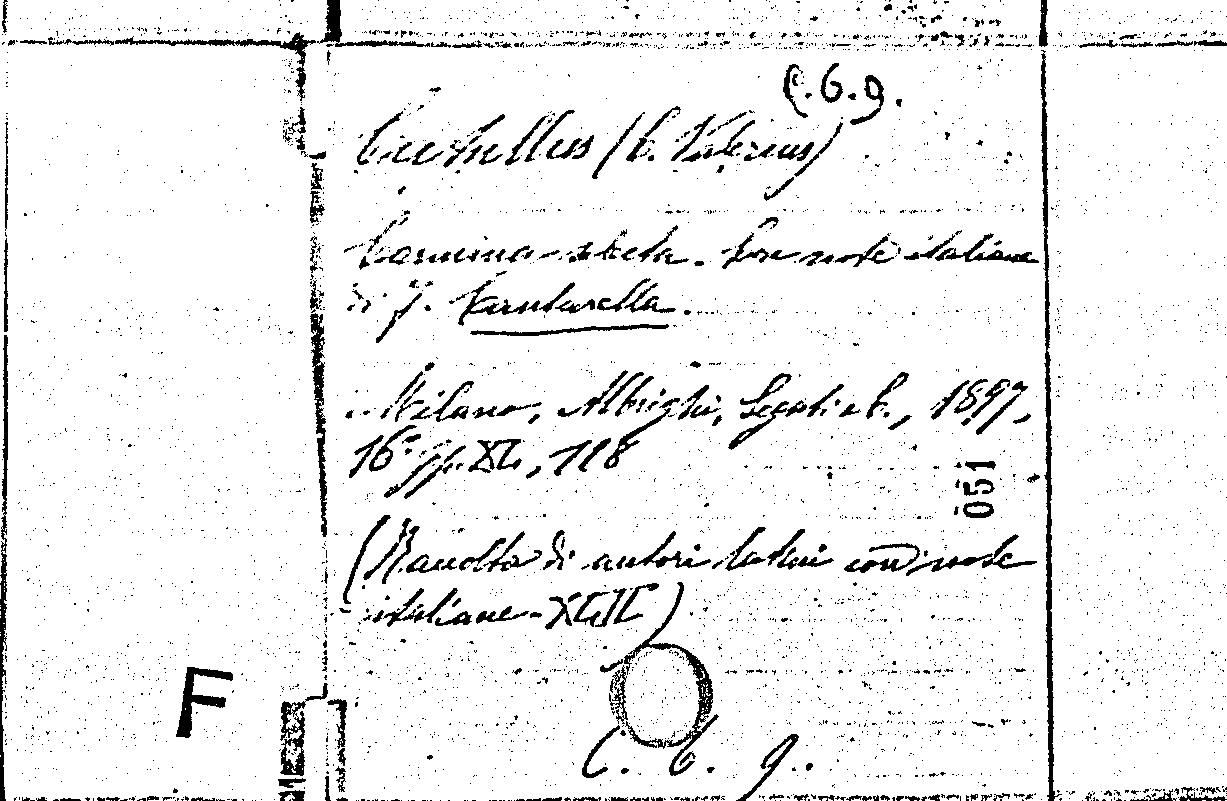 C.6.9.
Catullus (C. Valerius)
Carmina selecta. Con note italiane
di F. Cantarella.
Milano, Albrighi, Segati e C., 1897,
16° pp. XL, 118
(Raccolta di autori latini con note
italiane - XLII)
051
F
C. 6. 9.